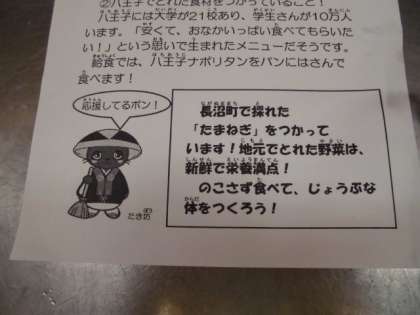 ②八王子でとれた食材をつかっていること！
八王子には大学が21校あり、学生さんが10万人
います。「安くて、おなかいっぱい食べてもらいた
い！」という思いで生まれたメニューだそうです。
給食では、八王子ナポリタンをパンにはさんで
食べます！
応援してるポン！
長沼町で採れた
「たまねぎ」をつかって
います！地元でとれた野菜は、
新鮮で栄養満点！
のこさず食べて、じょうぶな
体をつくろう！
たき坊